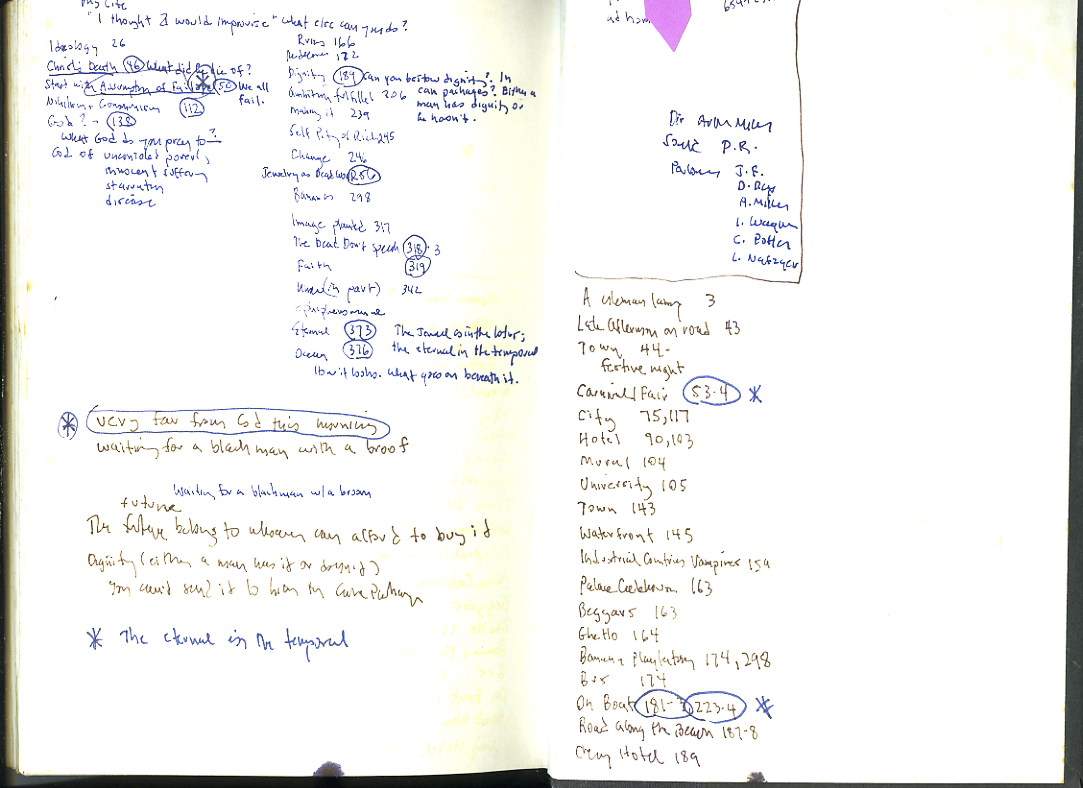 "I thought I would improvise" what else can you do?
Ideology 26
Christ's Death 46 What did he die of?
Start with Assumption of Failure 52 We all
fail.
Nihilism + Communism 112
God? - 138
What God do you pray to?
God of unconsoled poverty
innocent suffering
starvation
disease
Ruins 166
172
Dignity 189 Can you bestow dignity? In
can packages? Either a
man has dignity or
he hasn't.
Ambition fulfilled 206
Making it 239
Self Pity of Rich 245
Change 246
Jewelry as Dead 286
Bananas 298
Image planted 317
The Dead Don't Speak 318.3
Faith 319
Know (in part) 342
epiphenomenal
Eternal 373 The Jewel is in the lotus;
the eternal in the temporal
Ocean 376
How it looks. What goes on beneath it.
* very far from God this morning
waiting for a black man with a broom
Waiting for a black man w/ a broom
future
The future belongs to whoever can afford to buy it
Dignity (either a man has it or doesn't)
You can't send it to him in Care Package
* The eternal in the temporal
ad hom
Dir Arth Miller
P.R.
J.E.
D.
A. Miller
L.
C. Potter
L. Nafziger
A coleman lamp 3
Late Afternoon on road 43
Town 44-
festive night
Carnival/Fair 53-4 *
City 75, 117
Hotel 90, 103
Mural 104
University 105
Town 143
Waterfront 145
Industrial Countries Vampires 159
Palace 163
Beggars 163
Ghetto 164
Banana Plantation 174, 298
Bus 174
On Boat 181-3, 223-4 *
Road along the Beach 187-8
Hotel 189